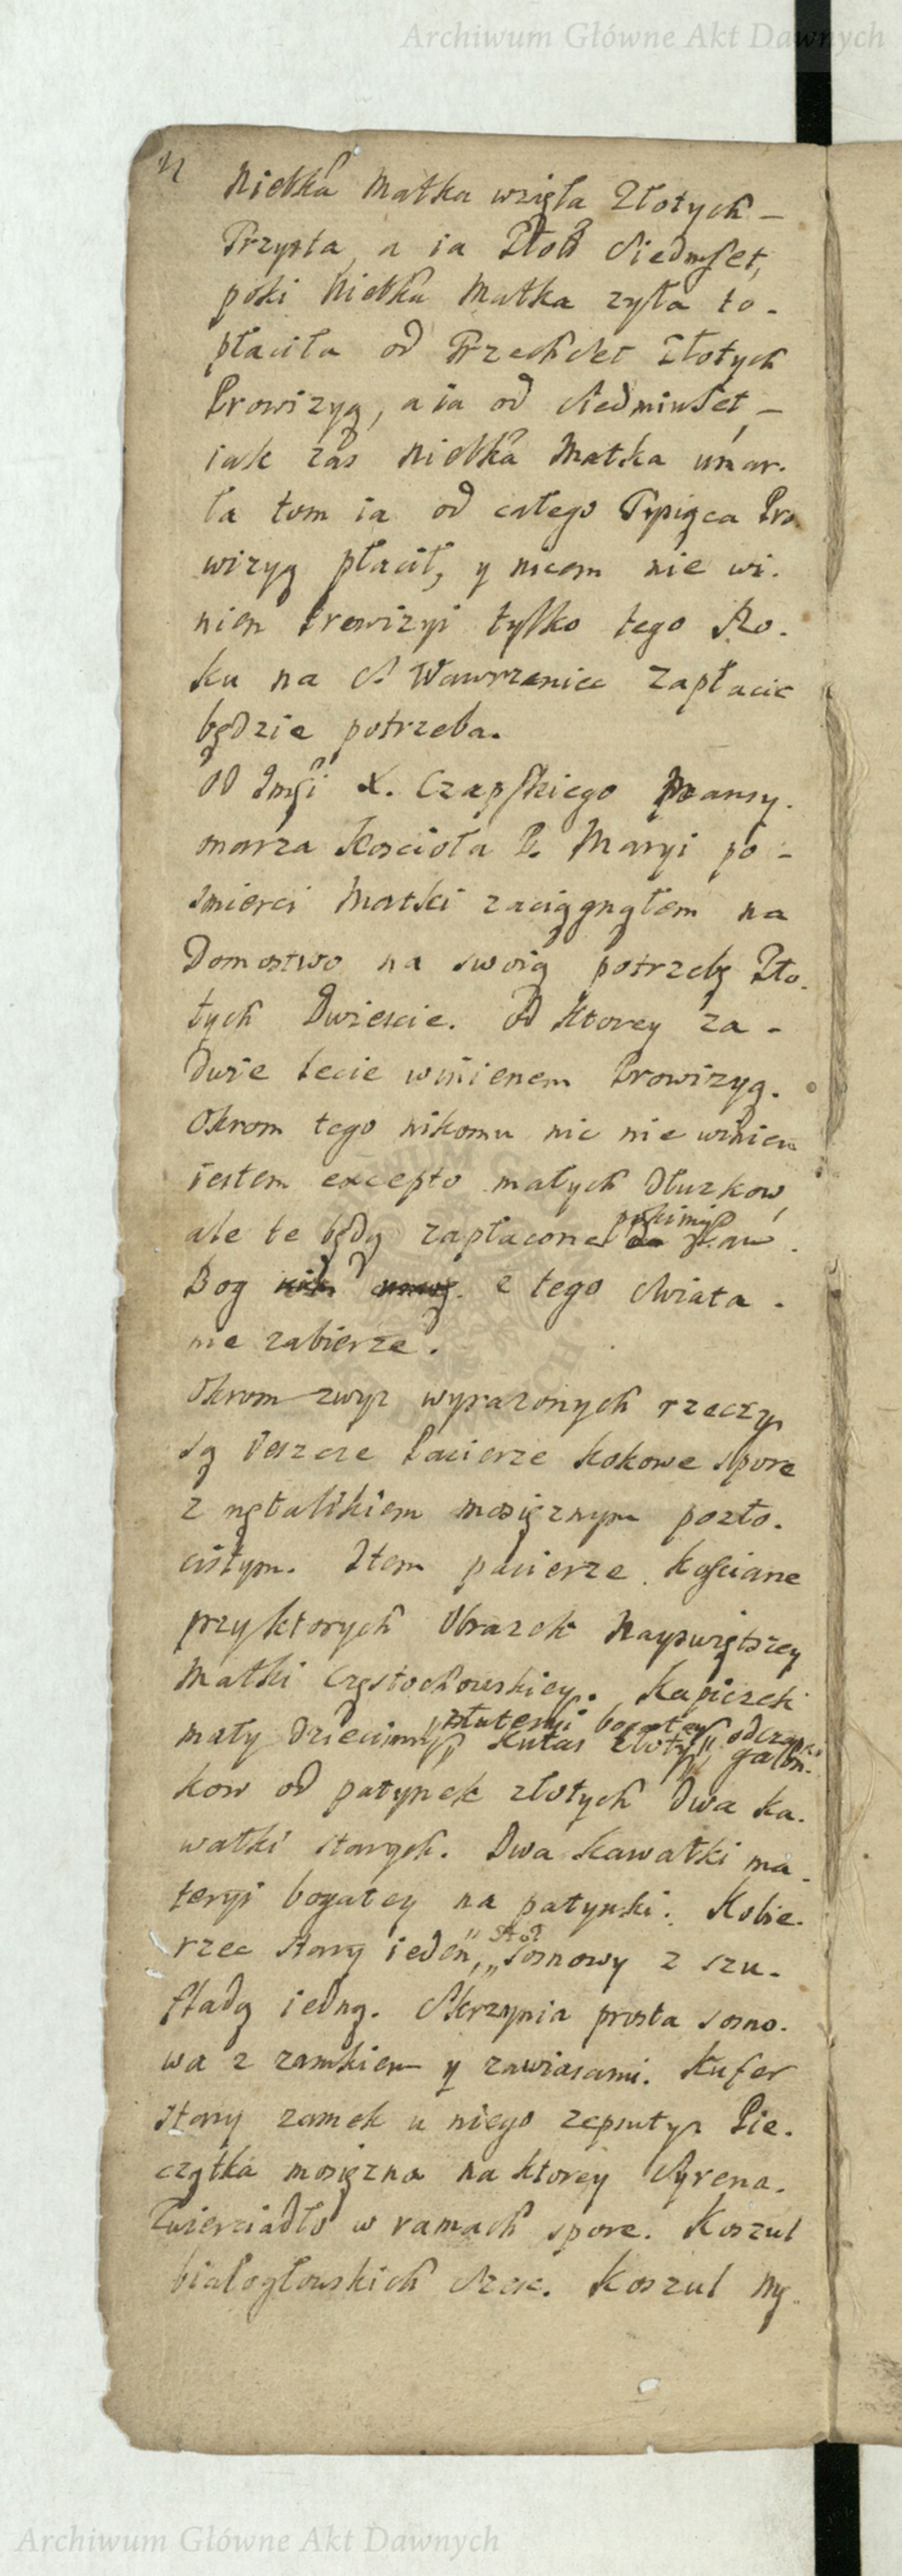 Archiwum Główne Akt Dawnych
Niebka Matka wzięła Złotych –
Trzysta, a ia Złoth Siedmset,
poki Niebka Matka zyła to-
płaciła od Trzechset Złotych
Prowizyą, a ia od Siedmiuset, –
iak zas Niebka Matka umar-
ła tom ia od całego Tysiąca Pro
wizyą płacił, y nicem nie wi-
nien Prowizyi tylko tego Ro-
ku na S. Wawrzeniec zapłacic
będzie potrzeba.
Od Imśi X. Czapskiego Mansy-
onarza Koscioła P. Maryi po-
smierci Matki zaciągnąłem na
Domostwo na swoią potrzebę Zło-
tych Dwiescie. Od ktorey za-
dwie lecie winienem Prowizyą.
Okrom tego nikomu nic nie winien
iestem excepto małych dłuzkow,
ale te będą zapłacone pokimię Pan
Bog z tego Swiata-
nie zabierze.
Okrom zwyz wyrazonych rzeczy
są ieszcze Pacierze kokowe spore
z mętalikiem mosięznym pozło-
cistym. Item pacierze kościane
przyktorych Obrazek Nayswiętszey
Matki Częstochowskiey. Kapiczek
mały dziecinny, złutemi bogatey odczapki
Kutas złoty, galon-
kow od patynek złotych dwa ka-
wałki starych. Dwa kawałki ma-
teryi bogatey na patynki. Kobie-
rzec stary ieden, Stoł Sosnowy z szu-
fladą iedną. Skrzynia prosta sosno-
wa z zamkiem y zawiasami. Kufer
stary zamek u niego zepsuty. Pie-
czątka mosięzna na ktorey Syrena.
Zwierciadło w ramach spore. Koszul
białogłowskich Szesc. Koszul mę-
Archiwum Główne Akt Dawnych